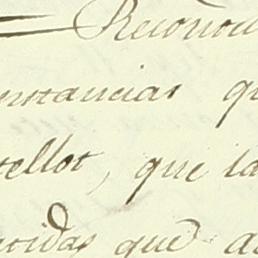 Reconoci
nstancias q
tellot, que la
tidas que a